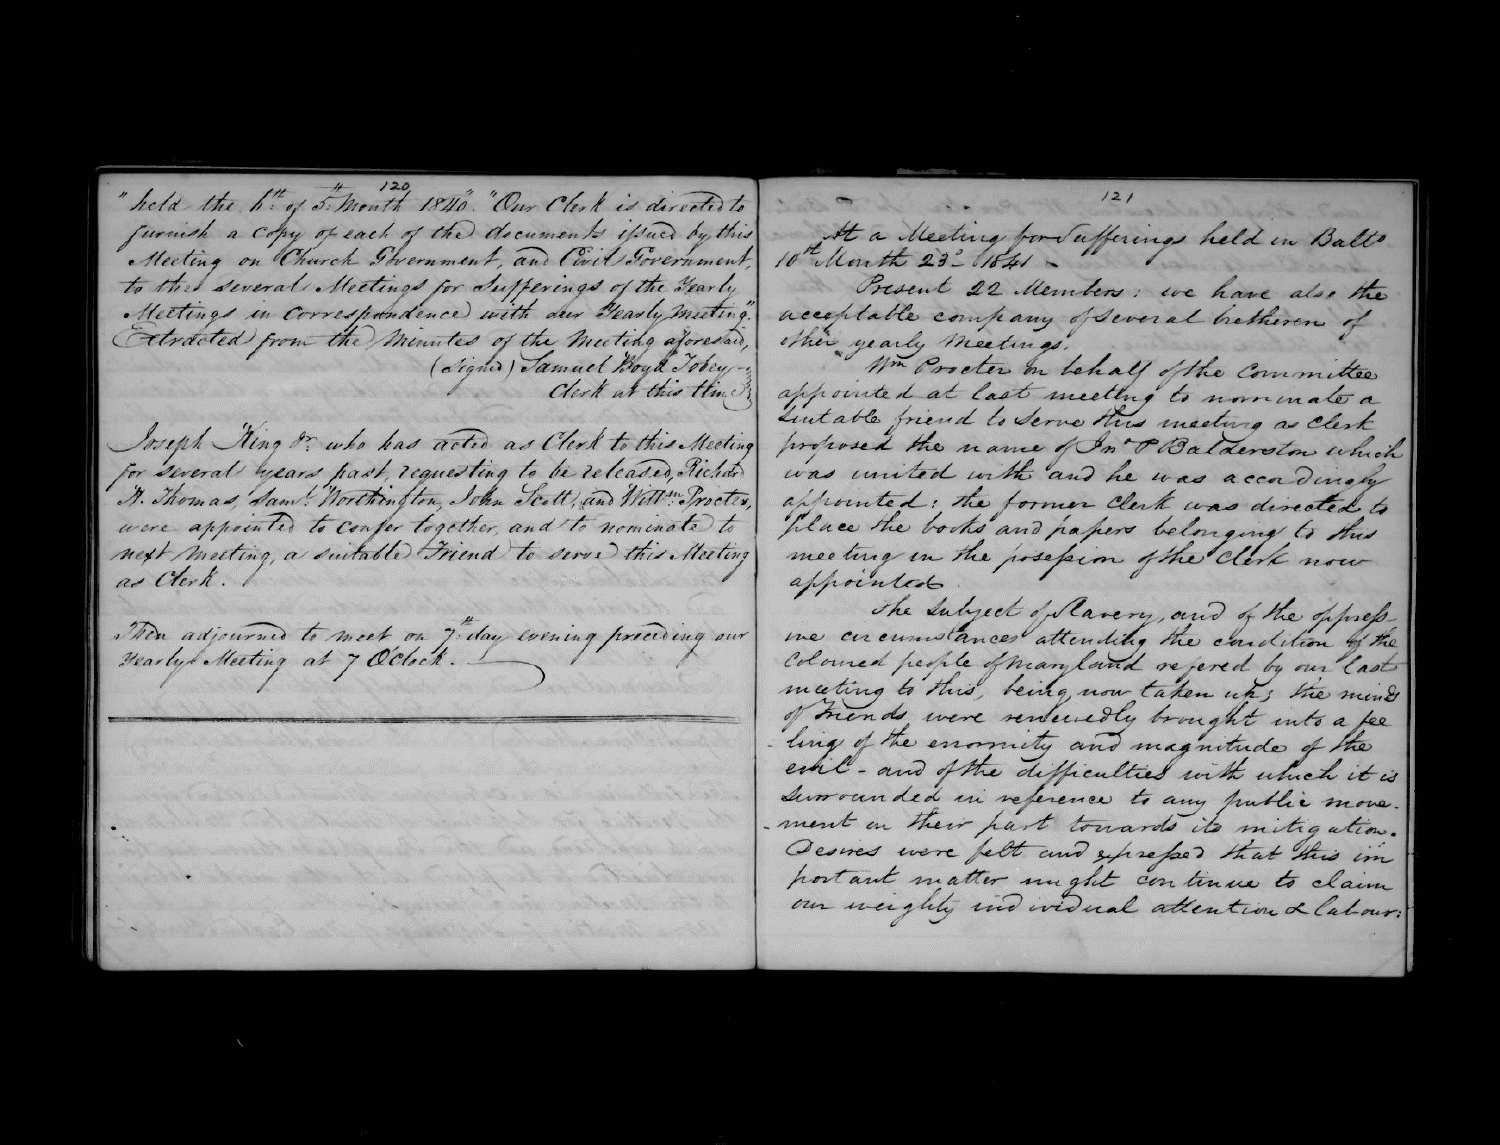 120
" held the 6th of 5th Month 1840". "Our Clerk is directed to
furnish a copy of each of the documents issued by this
Meeting on Church Government, and Civil Government,
to the several Meetings for Sufferings of the Yearly
Meetings in correspondence with our Yearly Meeting".
Extracted from the Minutes of the Meeting aforesaid,
(Signed) Samuel Boyd Tobey
Clerk at this time
Joseph King Jr. who has acted as Clerk to this Meeting
for several years past, requesting to be released, Richard
H. Thomas, Saml. Worthington, John Scott, and Willm. Procter,
were appointed to confer together, and to nominate to
next Meeting, a suitable Friend to serve this Meeting
as Clerk.
Then adjourned to meet on 7th day evening preceding our
Yearly Meeting at 7 OClock.
121
At a Meeting for Sufferings held in Balto
10th Month 23d 1841 -
Present 22 Members: we have also the
acceptable company of several bretheren of
other yearly Meetings.
Wm Procter on behalf of the Committee
appointed at last meeting to nominate a
suitable friend to serve this meeting as clerk
proposed the name of Jno P Balderston which
was united with and he was accordingly
appointed: the former Clerk was directed to
place the books and papers belonging to this
meeting in the posession of the Clerk now
appointed.
The Subject of Slavery, and of the oppress-
ive circumstances attending the condition of the
Coloured people of Maryland refered by our last
meeting to this, being now taken up; the minds
of Friends were renewedly brought into a fee
-ling of the enormity and magnitude of the
evil - and of the difficulties with which it is
surrounded in reference to any public move-
-ment on their part towards its mitigation.
Desires were felt and expressed that this im
portant matter might continue to claim
our weighty individual attention & labour: